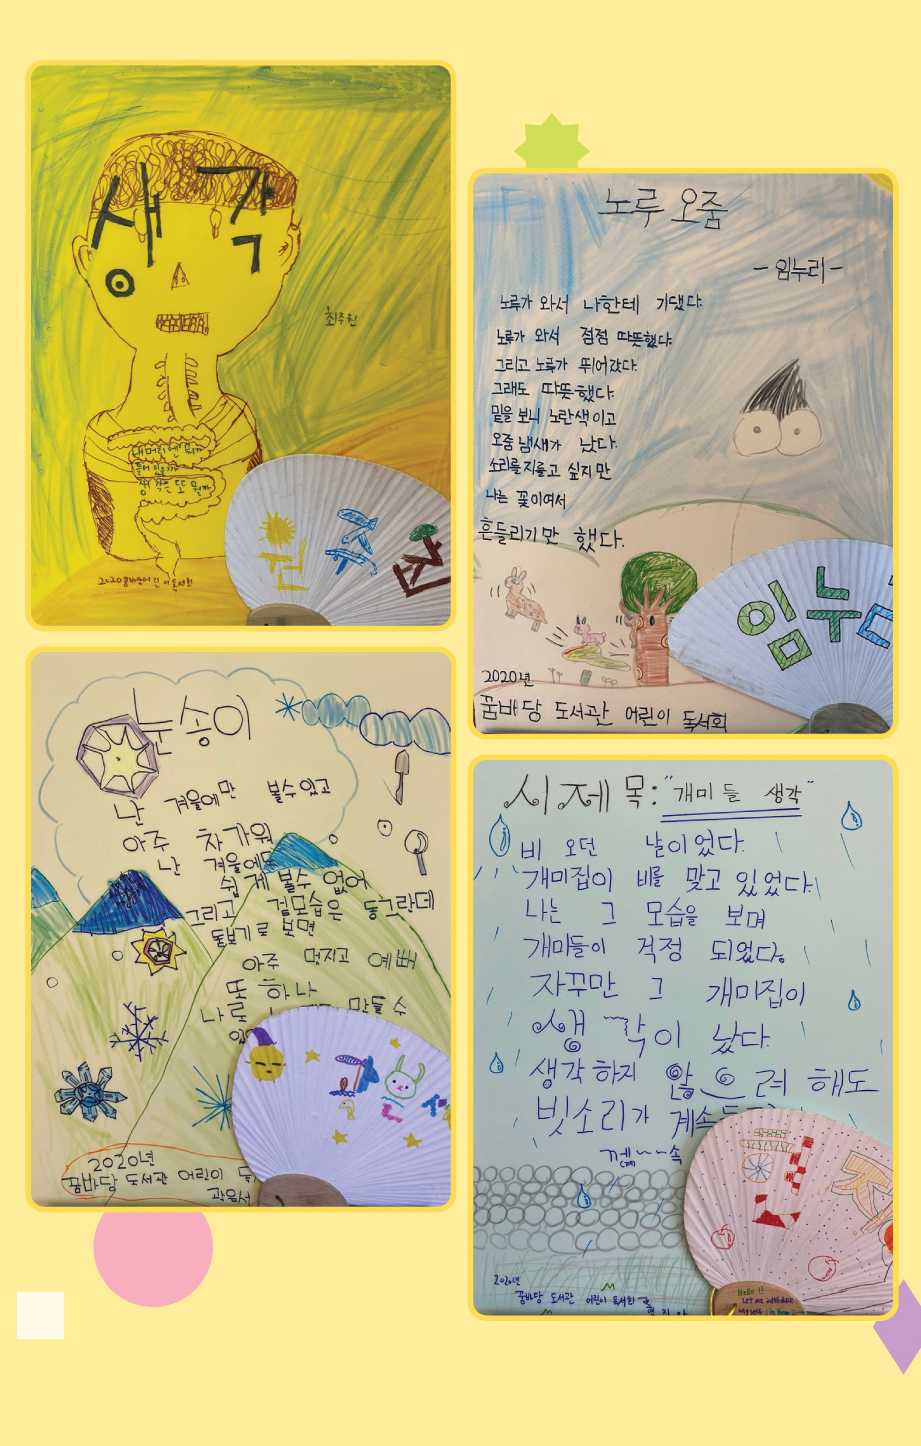 생각
최주원
내 머리엔 뭐가
들어 있을까
생각은 또 뭘까
노루 오줌
- 임누리 -
노루가 와서 나한테 기댔다.
노루가 와서 점점 따뜻했다.
그리고 노루가 뛰어갔다.
그래도 따뜻했다.
밑을 보니 노란색이고
오줌 냄새가 났다.
소리를 지르고 싶지만
나는 꽃이여서
흔들리기만 했다.
임누
2020년
꿈바당 도서관 어린이 독서회
눈송이
난 겨울에만 볼수있고
아주 차가워
난 겨울에도
쉽게 볼수 없어
그리고 겉모습은 동그란데
돋보기로 보면
아주 멋지고 예뻐
또 하나
만들 수
2020년
꿈바당 도서관 어린이
시제목: "개미들 생각"
비 오던 날이었다.
개미집이 비를 맞고 있었다.
나는 그 모습을 보며
개미들이 걱정 되었다.
자꾸만 그 개미집이
생각이 났다.
생각하지 않으려 해도
빗소리가 계속
2020년
꿈바당 도서관 어린이 독서회
Hello!!
Let me introduce
my self